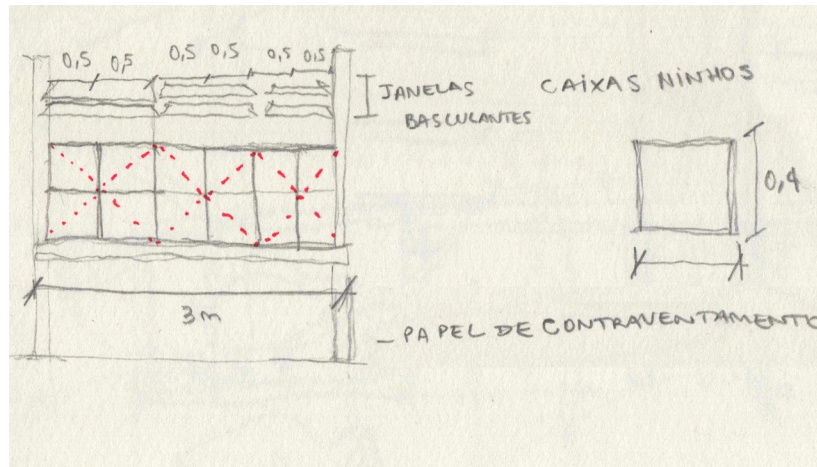 0,5 0,5 0,5 0,5 0,5 0,5
JANELAS
BASCULANTES
CAIXAS NINHOS
0,4
3m
- PAPEL DE CONTRAVENTAMENTO